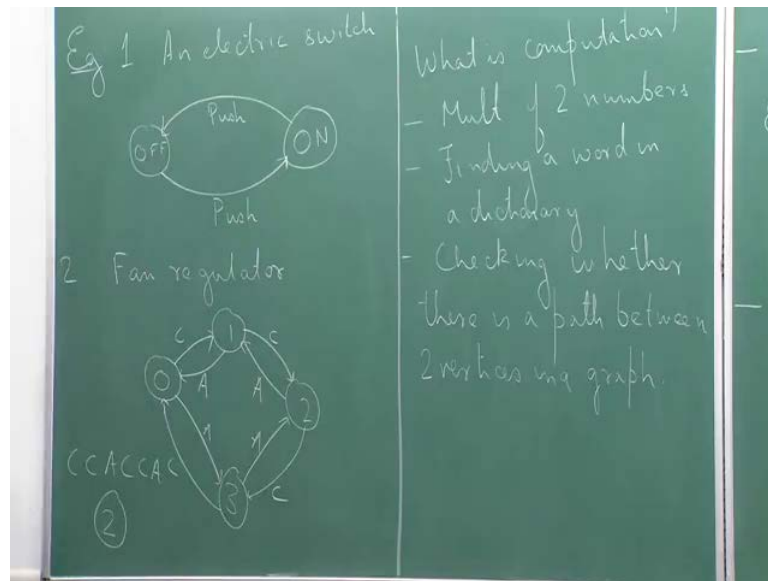 Eg 1 An electric switch
Push
OFF
ON
Push
2 Fan regulator
1
C
C
0
A
A
2
A
A
3
C
CCACCAC
2
What is computation?
- Mult of 2 numbers
- Finding a word in
a dictionary
- Checking whether
there is a path between
2 vertices in a graph.